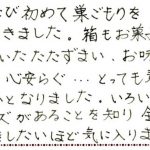 び初めて巣ごもりを
きました。箱もお菓
いたたずまい、お味
心安らぐ…とっても
いとなりました。いろい
ズがあることを知り全
ましたいほど気に入りま